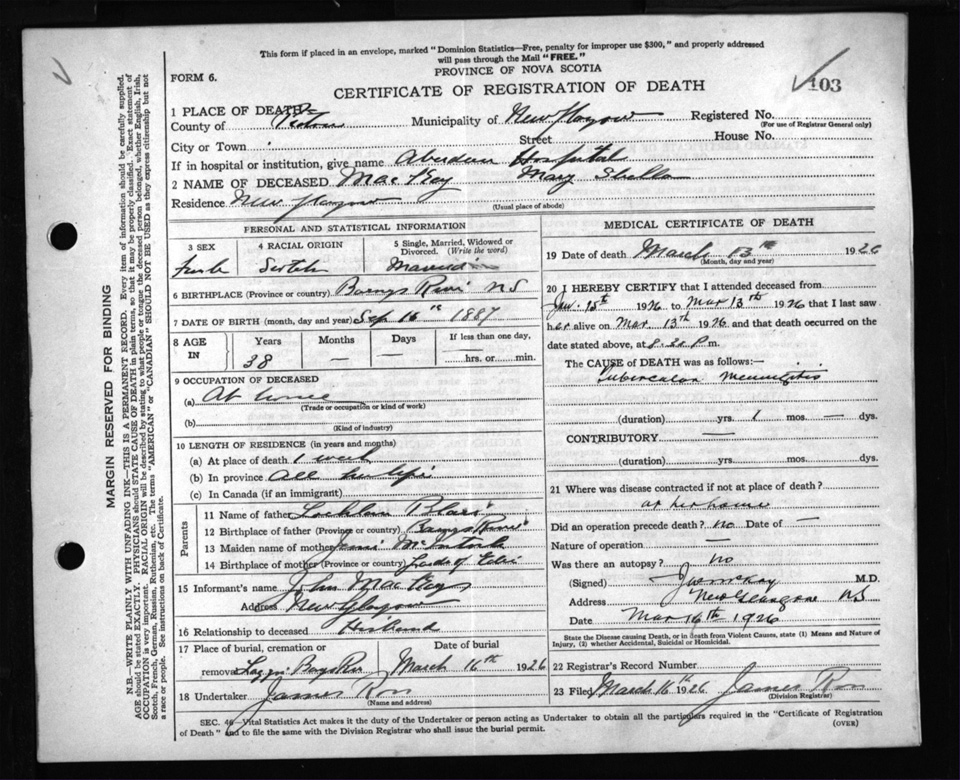 This form if placed in an envelope, marked "Dominion Statistics—Free, penalty for improper use $300," and properly addressed
will pass through the Mail "FREE."
PROVINCE OF NOVA SCOTIA
FORM 6.
CERTIFICATE OF REGISTRATION OF DEATH
103
1 PLACE OF DEATH
County of Pictou Municipality of New Glasgow Registered No.
(For use of Registrar General only)
City or Town Street House No.
If in hospital or institution, give name Aberdeen Hospital
2 NAME OF DECEASED MacKay Mary Shella
Residence New Glasgow
(Usual place of abode)
PERSONAL AND STATISTICAL INFORMATION
3 SEX 4 RACIAL ORIGIN 5 Single, Married, Widowed or Divorced. (Write the word)
Female Scotch Married
6 BIRTHPLACE (Province or country) Barneys River NS
7 DATE OF BIRTH (month, day and year) Sep 16 1887
8 AGE IN Years Months Days If less than one day,
38 — — hrs. or min.
9 OCCUPATION OF DECEASED
(a) At home
(Trade or occupation or kind of work)
(b)
(Kind of industry)
10 LENGTH OF RESIDENCE (in years and months)
(a) At place of death 1 week
(b) In province all her life
(c) In Canada (if an immigrant)
Parents
11 Name of father Lochlan Blair
12 Birthplace of father (Province or country) Barneys River
13 Maiden name of mother McIntosh
14 Birthplace of mother (Province or country)
15 Informant's name John MacKay
Address New Glasgow
16 Relationship to deceased Husband
17 Place of burial, cremation or Date of burial
removal Barneys River March 16th 1926
18 Undertaker James Ross
(Name and address)
MEDICAL CERTIFICATE OF DEATH
19 Date of death March 13th 1926
(Month, day and year)
20 I HEREBY CERTIFY that I attended deceased from
Jan. 15th 1926 to Mar 13th 1926 that I last saw
her alive on Mar 13th 1926 and that death occurred on the
date stated above, at 8.30 P.m.
The CAUSE of DEATH was as follows:—
Tubercular Meningitis
(duration) yrs. 1 mos. — dys.
CONTRIBUTORY —
(duration) yrs. mos. dys.
21 Where was disease contracted if not at place of death?
at her home
Did an operation precede death? No Date of —
Nature of operation —
Was there an autopsy? No
(Signed) M.D.
Address New Glasgow NS
Date Mar 16th 1926
State the Disease causing Death, or in death from Violent Causes, state (1) Means and Nature of
Injury, (2) whether Accidental, Suicidal or Homicidal.
22 Registrar's Record Number
23 Filed March 16th 1926 James Ross
(Division Registrar)
SEC. 46—Vital Statistics Act makes it the duty of the Undertaker or person acting as Undertaker to obtain all the particulars required in the "Certificate of Registration
of Death" and to file the same with the Division Registrar who shall issue the burial permit.
(OVER)
MARGIN RESERVED FOR BINDING
N.B.—WRITE PLAINLY WITH UNFADING INK—THIS IS A PERMANENT RECORD. Every item of information should be carefully supplied.
AGE should be stated EXACTLY. PHYSICIANS should STATE CAUSE OF DEATH in plain terms, so that it may be properly classified. Exact statement of
OCCUPATION is very important. RACIAL ORIGIN will be described by stating to what people or tongue the deceased person belonged, whether English, Irish,
Scotch, French, German, Russian, Ruthenian, etc. The terms "AMERICAN" or "CANADIAN" SHOULD NOT BE USED as they express citizenship but not
a race or people. See instructions on back of Certificate.